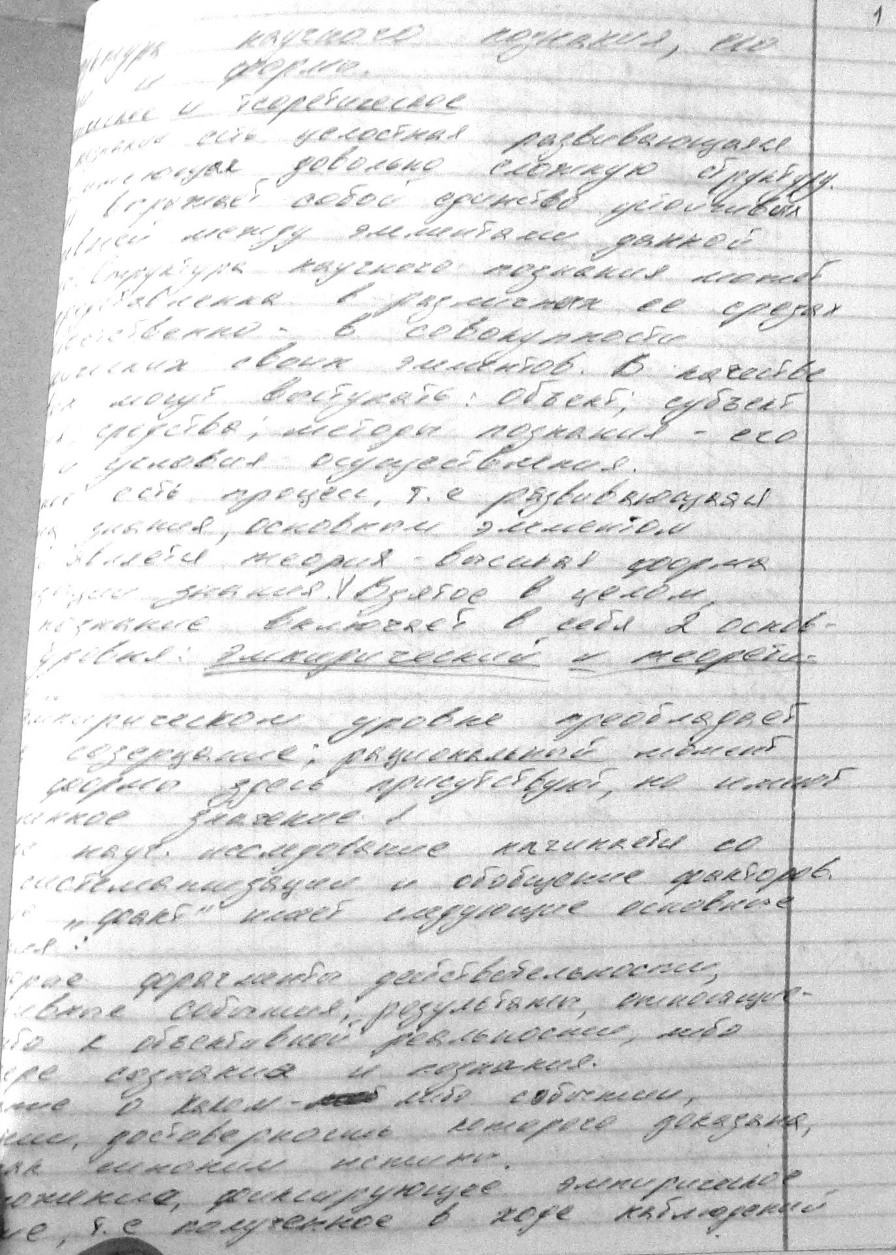 1
научного познания, его
и формы.
и теоретическое
есть целостная развивающаяся
имеющая довольно сложную структуру.
выражает собой единство устойчивых
между элементами данной
Структура научного познания может
представленна в различных ее срезах
в совокупности
своих элементов. В качестве
могут выступать: объект; субъект
средства; методы познания - его
условия осуществления.
есть процесс, т.е развивающаяся
знания, основном элементом
является теория - высшая форма
знания. Взятое в целом,
познание включает в себя 2 основ-
уровня: эмпирический и теорети-
уровне преобладает
созерцание; рациональный момент
формы здесь присутствуют, но имеют
значение.
науч. исследование начинается со
систематизации и обобщение факторов.
„факт" имеет следующие основные
фрагменты действительности,
события, результаты, относящие-
к объективной реальности, либо
сознания и познания.
о каком-либо событии,
достоверность которого доказана,
синоним истины.
фиксирующее эмпирическое
т.е полученное в ходе наблюдений